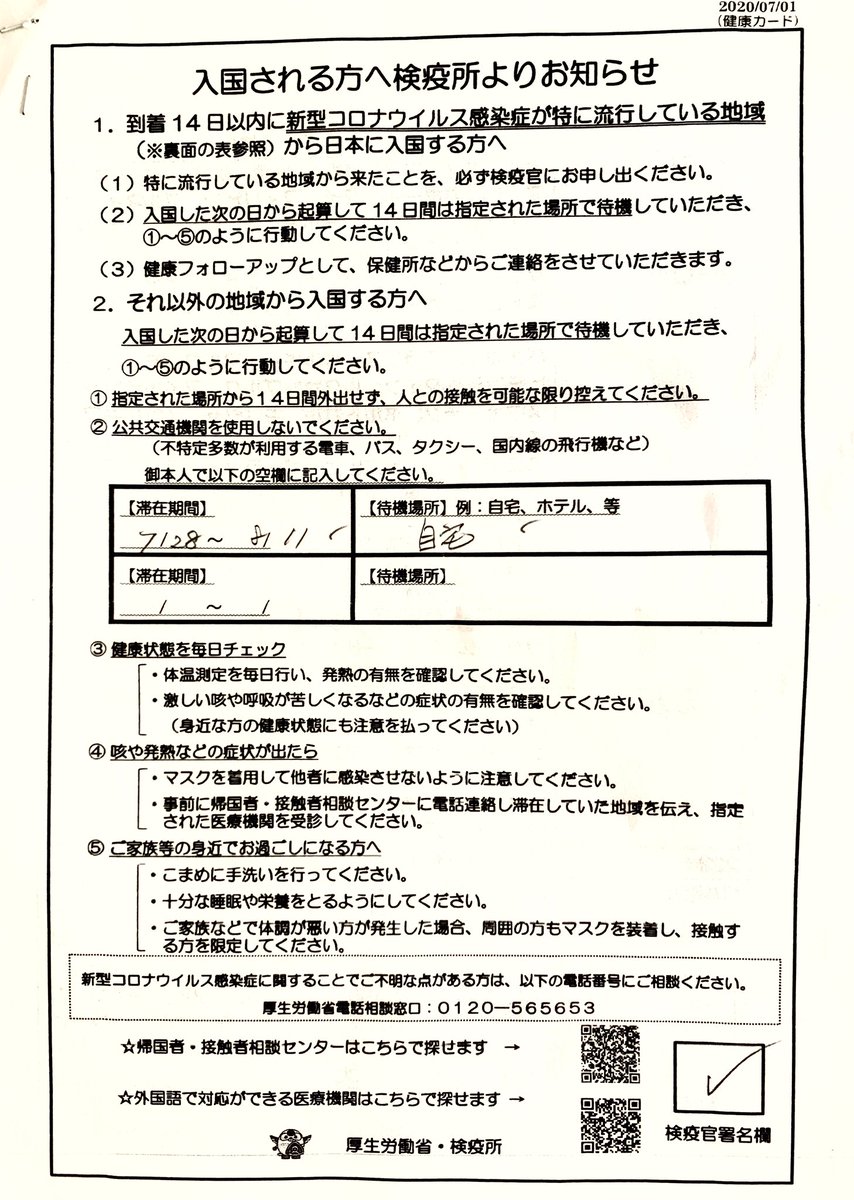 2020/07/01
（健康カード）
入国される方へ検疫所よりお知らせ
１．到着１４日以内に新型コロナウイルス感染症が特に流行している地域
（※裏面の表参照）から日本に入国する方へ
（１）特に流行している地域から来たことを、必ず検疫官にお申し出ください。
（２）入国した次の日から起算して１４日間は指定された場所で待機していただき、
①～⑤のように行動してください。
（３）健康フォローアップとして、保健所などからご連絡をさせていただきます。
２．それ以外の地域から入国する方へ
入国した次の日から起算して１４日間は指定された場所で待機していただき、
①～⑤のように行動してください。
① 指定された場所から１４日間外出せず、人との接触を可能な限り控えてください。
② 公共交通機関を使用しないでください。
（不特定多数が利用する電車、バス、タクシー、国内線の飛行機など）
御本人で以下の空欄に記入してください。
【滞在期間】 【待機場所】例：自宅、ホテル、等
7/28～ 8/11 自宅
【滞在期間】 【待機場所】
/ ～ /
③ 健康状態を毎日チェック
・体温測定を毎日行い、発熱の有無を確認してください。
・激しい咳や呼吸が苦しくなるなどの症状の有無を確認してください。
（身近な方の健康状態にも注意を払ってください）
④ 咳や発熱などの症状が出たら
・マスクを着用して他者に感染させないように注意してください。
・事前に帰国者・接触者相談センターに電話連絡し滞在していた地域を伝え、指定
された医療機関を受診してください。
⑤ ご家族等の身近でお過ごしになる方へ
・こまめに手洗いを行ってください。
・十分な睡眠や栄養をとるようにしてください。
・ご家族などで体調が悪い方が発生した場合、周囲の方もマスクを装着し、接触す
る方を限定してください。
新型コロナウイルス感染症に関することでご不明な点がある方は、以下の電話番号にご相談ください。
厚生労働省電話相談窓口：０１２０－５６５６５３
☆帰国者・接触者相談センターはこちらで探せます →
☆外国語で対応ができる医療機関はこちらで探せます →
厚生労働省・検疫所
検疫官署名欄